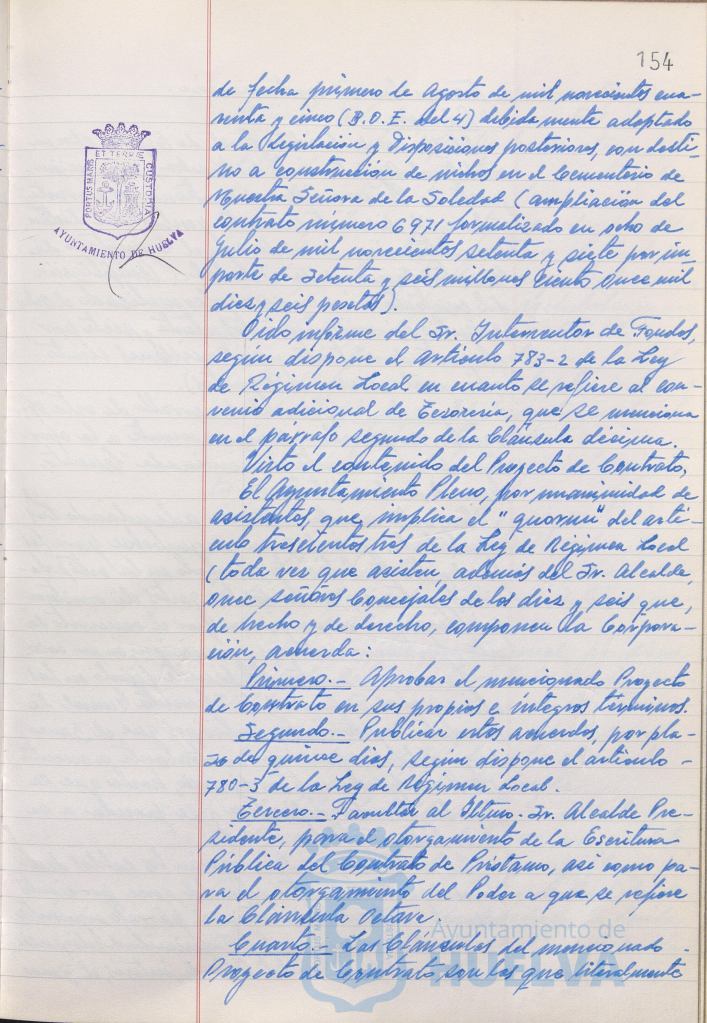 154
de fecha primero de Agosto de mil novecientos cua-
renta y cinco (B.O.E. del 4) debidamente adaptado
a la Legislación y Disposiciones posteriores, con desti-
no a construcción de nichos en el Cementerio de
Nuestra Señora de la Soledad (ampliación del
contrato número 6971 formalizado en ocho de
Julio de mil novecientos setenta y siete por im
porte de Setenta y seis millones ciento once mil
diez y seis pesetas).
Oido informe del Sr. Interventor de Fondos,
según dispone el artículo 783-2 de la Ley
de Régimen Local en cuanto se refiere al con-
venio adicional de Tesorería, que se menciona
en el párrafo segundo de la Cláusula décima.
Visto el contenido del Proyecto de Contrato,
El Ayuntamiento Pleno, por unanimidad de
asistentes, que implica el "quorum" del artí-
culo trescientos tres de la Ley de Régimen Local
(toda vez que asisten, además del Sr. Alcalde,
once señores Concejales de los diez y seis que,
de hecho y de derecho, componen la Corpora-
ción, acuerda:
Primero.- Aprobar el mencionado Proyecto
de Contrato en sus propios e íntegros términos.
Segundo.- Publicar estos acuerdos, por pla-
zo de quince dias, según dispone el artículo -
780-3 de la Ley de Régimen Local.
Tercero.- Facultar al Iltmo. Sr. Alcalde Pre-
sidente, para el otorgamiento de la Escritura
Pública del Contrato de Préstamo, asi como pa-
ra el otorgamiento del Poder a que se refiere
la Cláusula Octava.
Cuarto.- Las Cláusulas del mencionado -
Proyecto de Contrato son las que literalmente
PORTUS MARIS ET TERRE CUSTODIA
AYUNTAMIENTO DE HUELVA
Ayuntamiento de
HUELVA